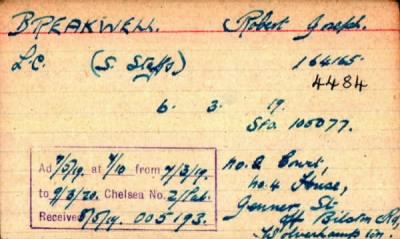 BREAKWELL. Robert Joseph.
L.C. (S. Staffs) 164165.
4484
6. 3. 19.
S/O. 105077.
Ad 7/5/19. at 7/10 from 7/3/19.
to 9/3/20. Chelsea No. 2/Pat.
Received 8/5/19. 005193.
No. 2 Court,
No. 4 House,
Jenner St
off Bilston Rd,
Wolverhampton.